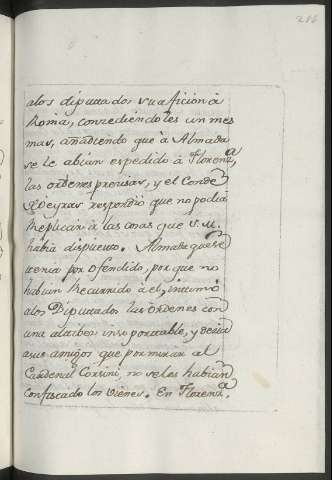 286
alos diputados su aficion à
Roma, conzediendoles un mes
mas, añadiendo que à Almada
se le abian espedido à Florenz.a
las ordenes precisas, y el Conde
replicar à las cosas que S. M.
habia dispuesto. Almada que se
tenia por ofendido, por que no
habian Recurrido à el, intimó
alos Diputados las ordenes con
una altibez insoportable, y decia
asus amigos que por mirar al
Cardenal Corsini, no seles habian
confiscado los vienes. En Florenz.a